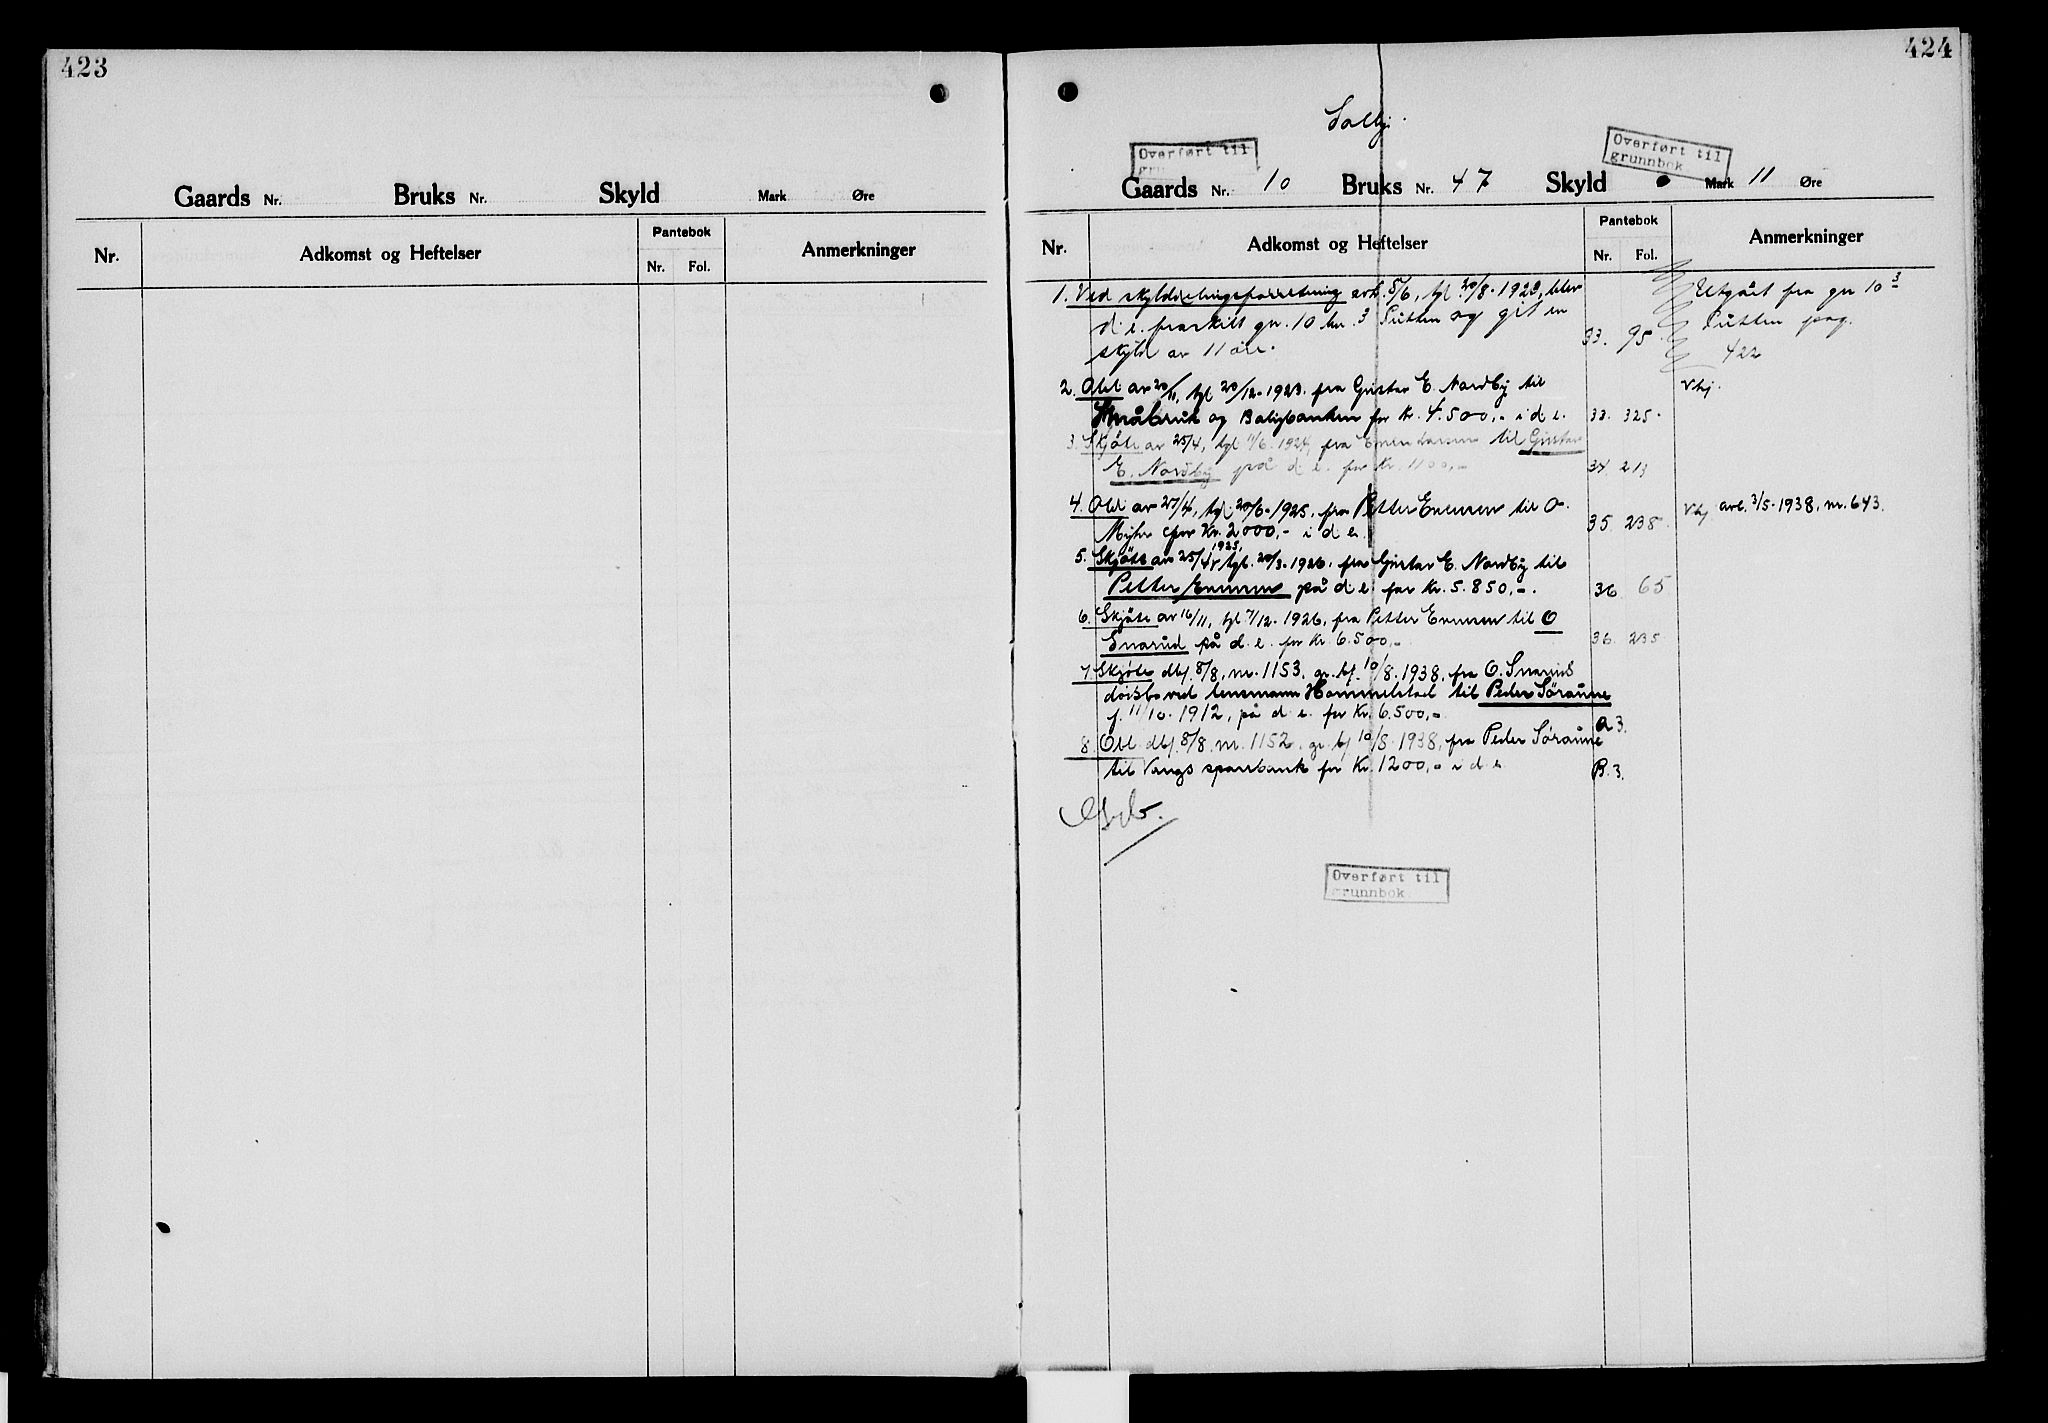 423
Gaards Nr. Bruks Nr. Skyld Mark Øre
Nr. Adkomst og Heftelser Pantebok Nr. Fol. Anmerkninger
424
Solby.
Overført til
Overført til
grunnbok
Gaards Nr. 10 Bruks Nr. 47 Skyld Mark 11 Øre
Nr. Adkomst og Heftelser Pantebok Nr. Fol. Anmerkninger
1. Ved skylddelingsforretning avh. 5/6, tgl. 20/8. 1923, blev
d. e. fraskilt gr. 10 br. 3 Sutten og git en
skyld av 11 øre. 33. 95
Utgået fra gr 10 3
Sutten pag.
422
2. Obl av 20/11, tgl 20/12. 1923. fra Gustav E. Nordby til
Småbruk og Boligbanken for kr. 4.500,- i d e. 33. 325.
Vhj.
3. Skjøte av 25/4, tgl 11/6. 1924, fra Even Larsen til Gustav
E. Nordby på d. e. for Kr. 1100,- 34 213
4. Obl av 27/4, tgl. 20/6. 1925, fra Petter Evensen til O.
Myhr for Kr. 2000,- i d e. 35 238.
Vhj avl. 3/5. 1938, nr. 643.
1925,
5. Skjøte av 25/4, tgl. 20/3. 1926. fra Gustav E. Nordby til
Petter Evensen på d e. for Kr. 5.850,-. 36 65
6. Skjøte av 16/11, tgl 7/12. 1926, fra Petter Evensen til O
Snarud på d. e. for Kr 6.500,- 36. 235
7. Skjøte dbf. 8/8, nr. 1153, gr. bf. 10/8. 1938, fra O. Snaruds
dødsbo ved lensmann Hommelstad til Peder Søraune
f. 11/10. 1912, på d. e. for Kr. 6.500,- A 3.
8. Obl. dbf. 8/8. nr. 1152. gr. bf 10/8. 1938, fra Peder Søraune
til Vangs sparebank for Kr. 1200,- i d e B. 3.
Overført til
grunnbok